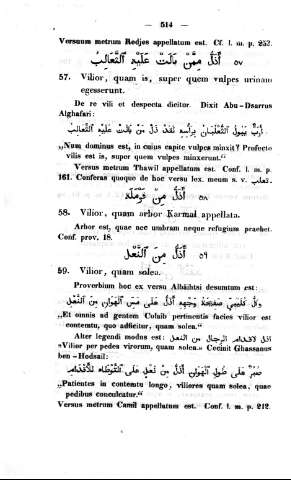 — 514 —
Versuum metrum Redjes appellatum est. Cf. l. m. p. 252.
٥٧ أَذَلُّ مِمَّنْ بَالَتْ عَلَيْهِ ٱلثَّعَالِبُ
57. Vilior, quam is, super quem vulpes urinam
egesserunt.
De re vili et despecta dicitur. Dixit Abu-Dsarrus
Alghafari:
أَرَبٌّ يَبُولُ ٱلثَّعْلَبَانِ بِرَأْسِهِ لَقَدْ ذَلَّ مَنْ بَالَتْ عَلَيْهِ ٱلثَّعَالِبُ
„Num dominus est, in cuius capite vulpes minxit? Profecto
vilis est is, super quem vulpes minxerunt.“
Versus metrum Thawil appellatum est. Conf. l. m. p.
161. Conferas quoque de hoc versu lex. meum s. v. ثعلب.
٥٨ أَذَلُّ مِنْ قَرْمَلَةٍ
58. Vilior, quam arbor Karmal appellata.
Arbor est, quae nec umbram neque refugium praebet.
Conf. prov. 18.
٥٩ أَذَلُّ مِنَ ٱلنَّعْلِ
59. Vilior, quam solea.
Proverbium hoc ex versu Albaihtsi desumtum est:
وَكُلُّ كُلَيْبِيٍّ صَفِيحَةُ وَجْهِهِ أَذَلُّ عَلَى مَسِّ ٱلْهَوَانِ مِنَ ٱلنَّعْلِ
„Et omnis ad gentem Colaib pertinentis facies vilior est
contemtu, quo adficitur, quam solea.“
Alter legendi modus est: أذل لاقدام الرجال من النعل
«Vilior per pedes virorum, quam solea.» Cecinit Ghassanus
ben-Hodsail:
صَبْرٌ عَلَى طُولِ ٱلْهَوَانِ أَذَلُّ مِنْ نَعْلٍ عَلَى ٱلْوَطْءِ لِلْأَقْدَامِ
„Patientes in contemtu longo, viliores quam solea, quae
pedibus conculcatur.“
Versus metrum Camil appellatum est. Conf. l. m. p. 212.